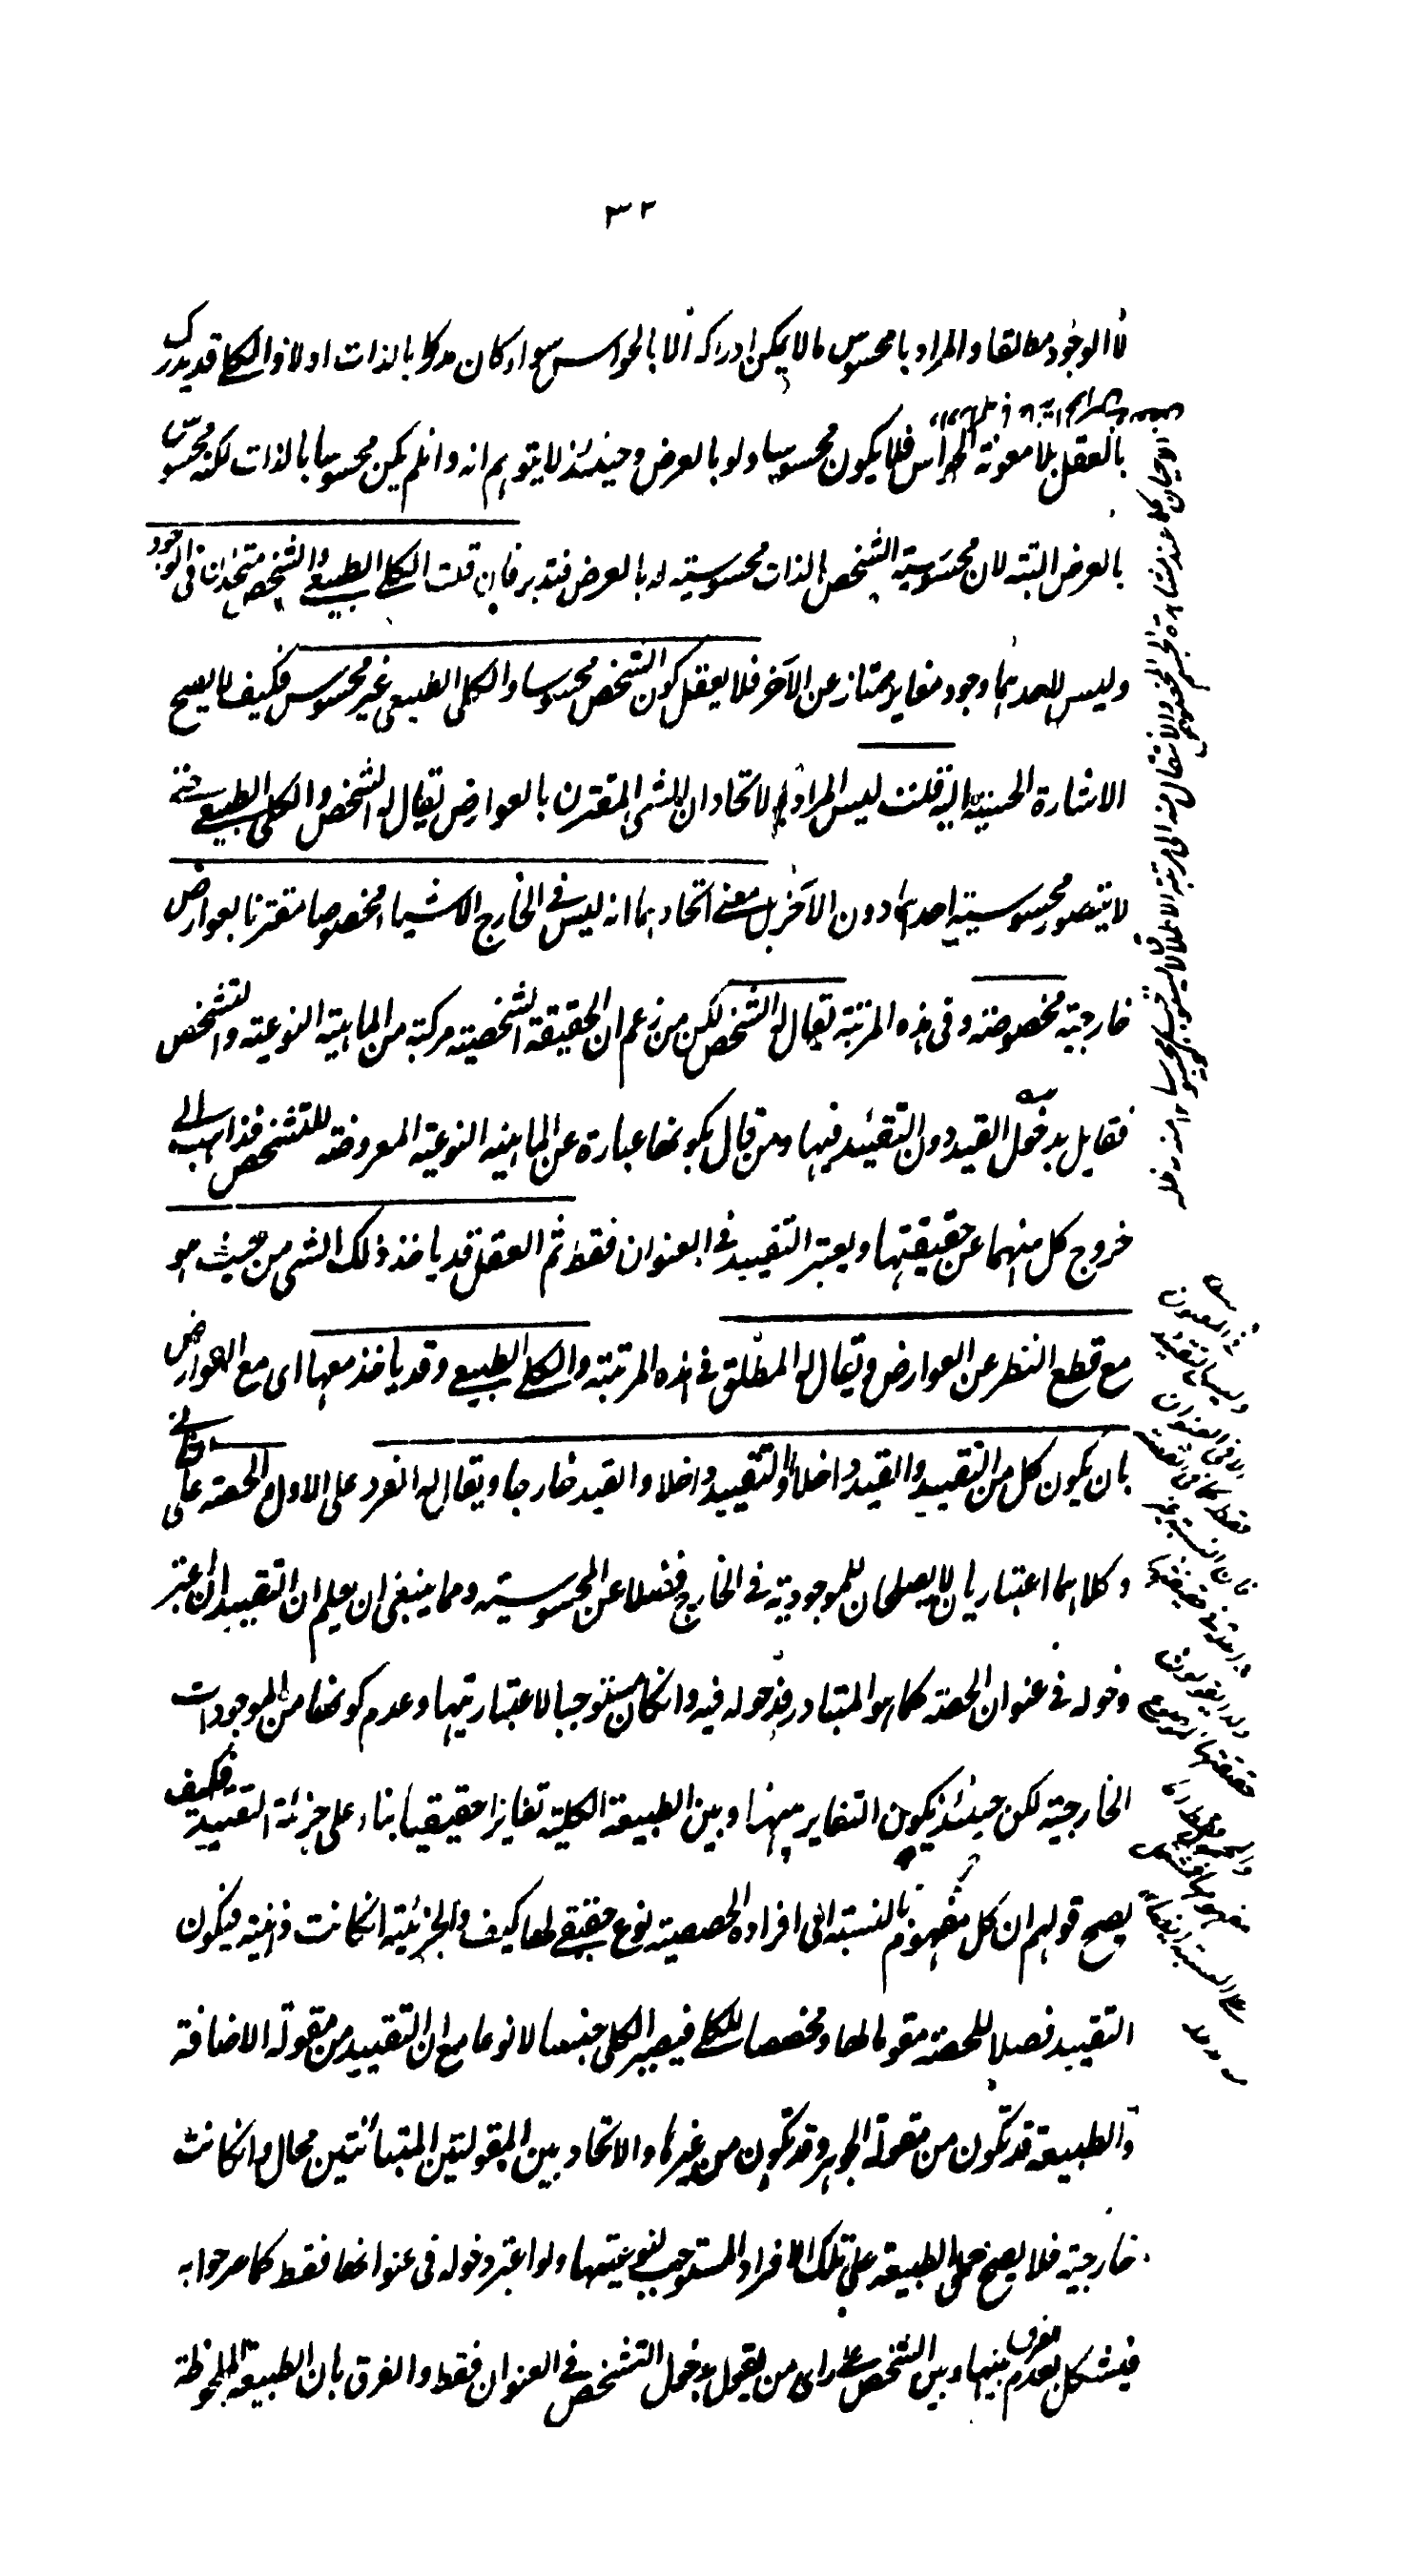 ٣٢
لا الوجود مطلقا والمراد بالمحسوس مالا يمكن ادراكه الا بالحواس سواء كان مدركا بالذات اولا والكلے قد يدرك
بالعقل بلا معونة الحواس فلا يكون محسوسا ولو بالعرض وحينئذ لا يتوهم انه وان لم يكن محسوسا بالذات لكنه محسوس
بالعرض البتة لان محسوسية الشخص بالذات محسوسيته له بالعرض فتدبر فان قلت الكلے الطبيعے والشخص متحدان فى الوجود
وليس لاحدهما وجود مغاير ممتاز عن الآخر فلا يعقل كون الشخص محسوسا والكلى الطبيعى غير محسوس فكيف لا يصح
الاشارة الحسية اليه قلت ليس المراد بالاتحاد ان للشى المقترن بالعوارض يقال له الشخص والكلى الطبيعے حتى
لا يتصور محسوسية احدهما دون الآخر بل معنے اتحادهما انه ليس فى الخارج الا شيئا مخصوصا مقترنا بعوارض
خارجية مخصوصة وفى هذه المرتبة يقال له الشخص لكن من زعم ان الحقيقة الشخصية مركبة من الماهية النوعية والتشخص
فقايل بدخول القيد دون التقئيد فيها ومن قال بكونها عبارة عن الماهية النوعية المعروضة للتشخص فذاهب الے
خروج كل منهما عن حقيقتها ويعتبر التقييد فى العنوان فقط ثم العقل قد ياخذ ذلك الشى من حيث هو
مع قطع النظر عن العوارض ويقال له المطلق فى هذه المرتبة والكلے الطبيعے وقد ياخذ معها اى مع العوارض
بان يكون كل من التقييد والقيد داخلا او التقييد داخلا والقيد خارجا ويقال له الفرد على الاول والحصة على الثانے
وكلاهما اعتباريان لا يصلحان للموجودية فى الخارج فضلا عن المحسوسية ومما ينبغى ان يعلم ان التقييد ان اعتبر
دخوله فى عنوان الحصة كما هو المتبادر فدخوله فيه وانكان مستوجبا لاعتباريتها وعدم كونها من الموجودات
الخارجية لكن حينئذ يكون التغاير بينها وبين الطبيعة الكلية تغايرا حقيقيا بناء على جزئية التقييد فكيف
يصح قولهم ان كل مفهوم بالنسبة الى افراده الحصصية نوع حقيقے لها كيف والجزئية انكانت ذهنية فيكون
التقييد فصلا للحصة مقوما لها ومخصصا للكلے فيصير الكلى جنسا لا نوعا مع ان التقييد من مقولة الاضافة
والطبيعة قد تكون من مقولة الجوهر وقد تكون من غيرها والاتحاد بين المقولتين المتبائنتين محال وانكانت
خارجية فلا يصح حمل الطبيعة على تلك الافراد المستوجب لنوعيتها ولو اعتبر دخوله فى عنوانها فقط كما صرحوا به
فيشكل بعدم الفرق بينها وبين الشخص على راى من يقول بدخول التشخص فى العنوان فقط والفرق بان الطبيعة الملحوظة